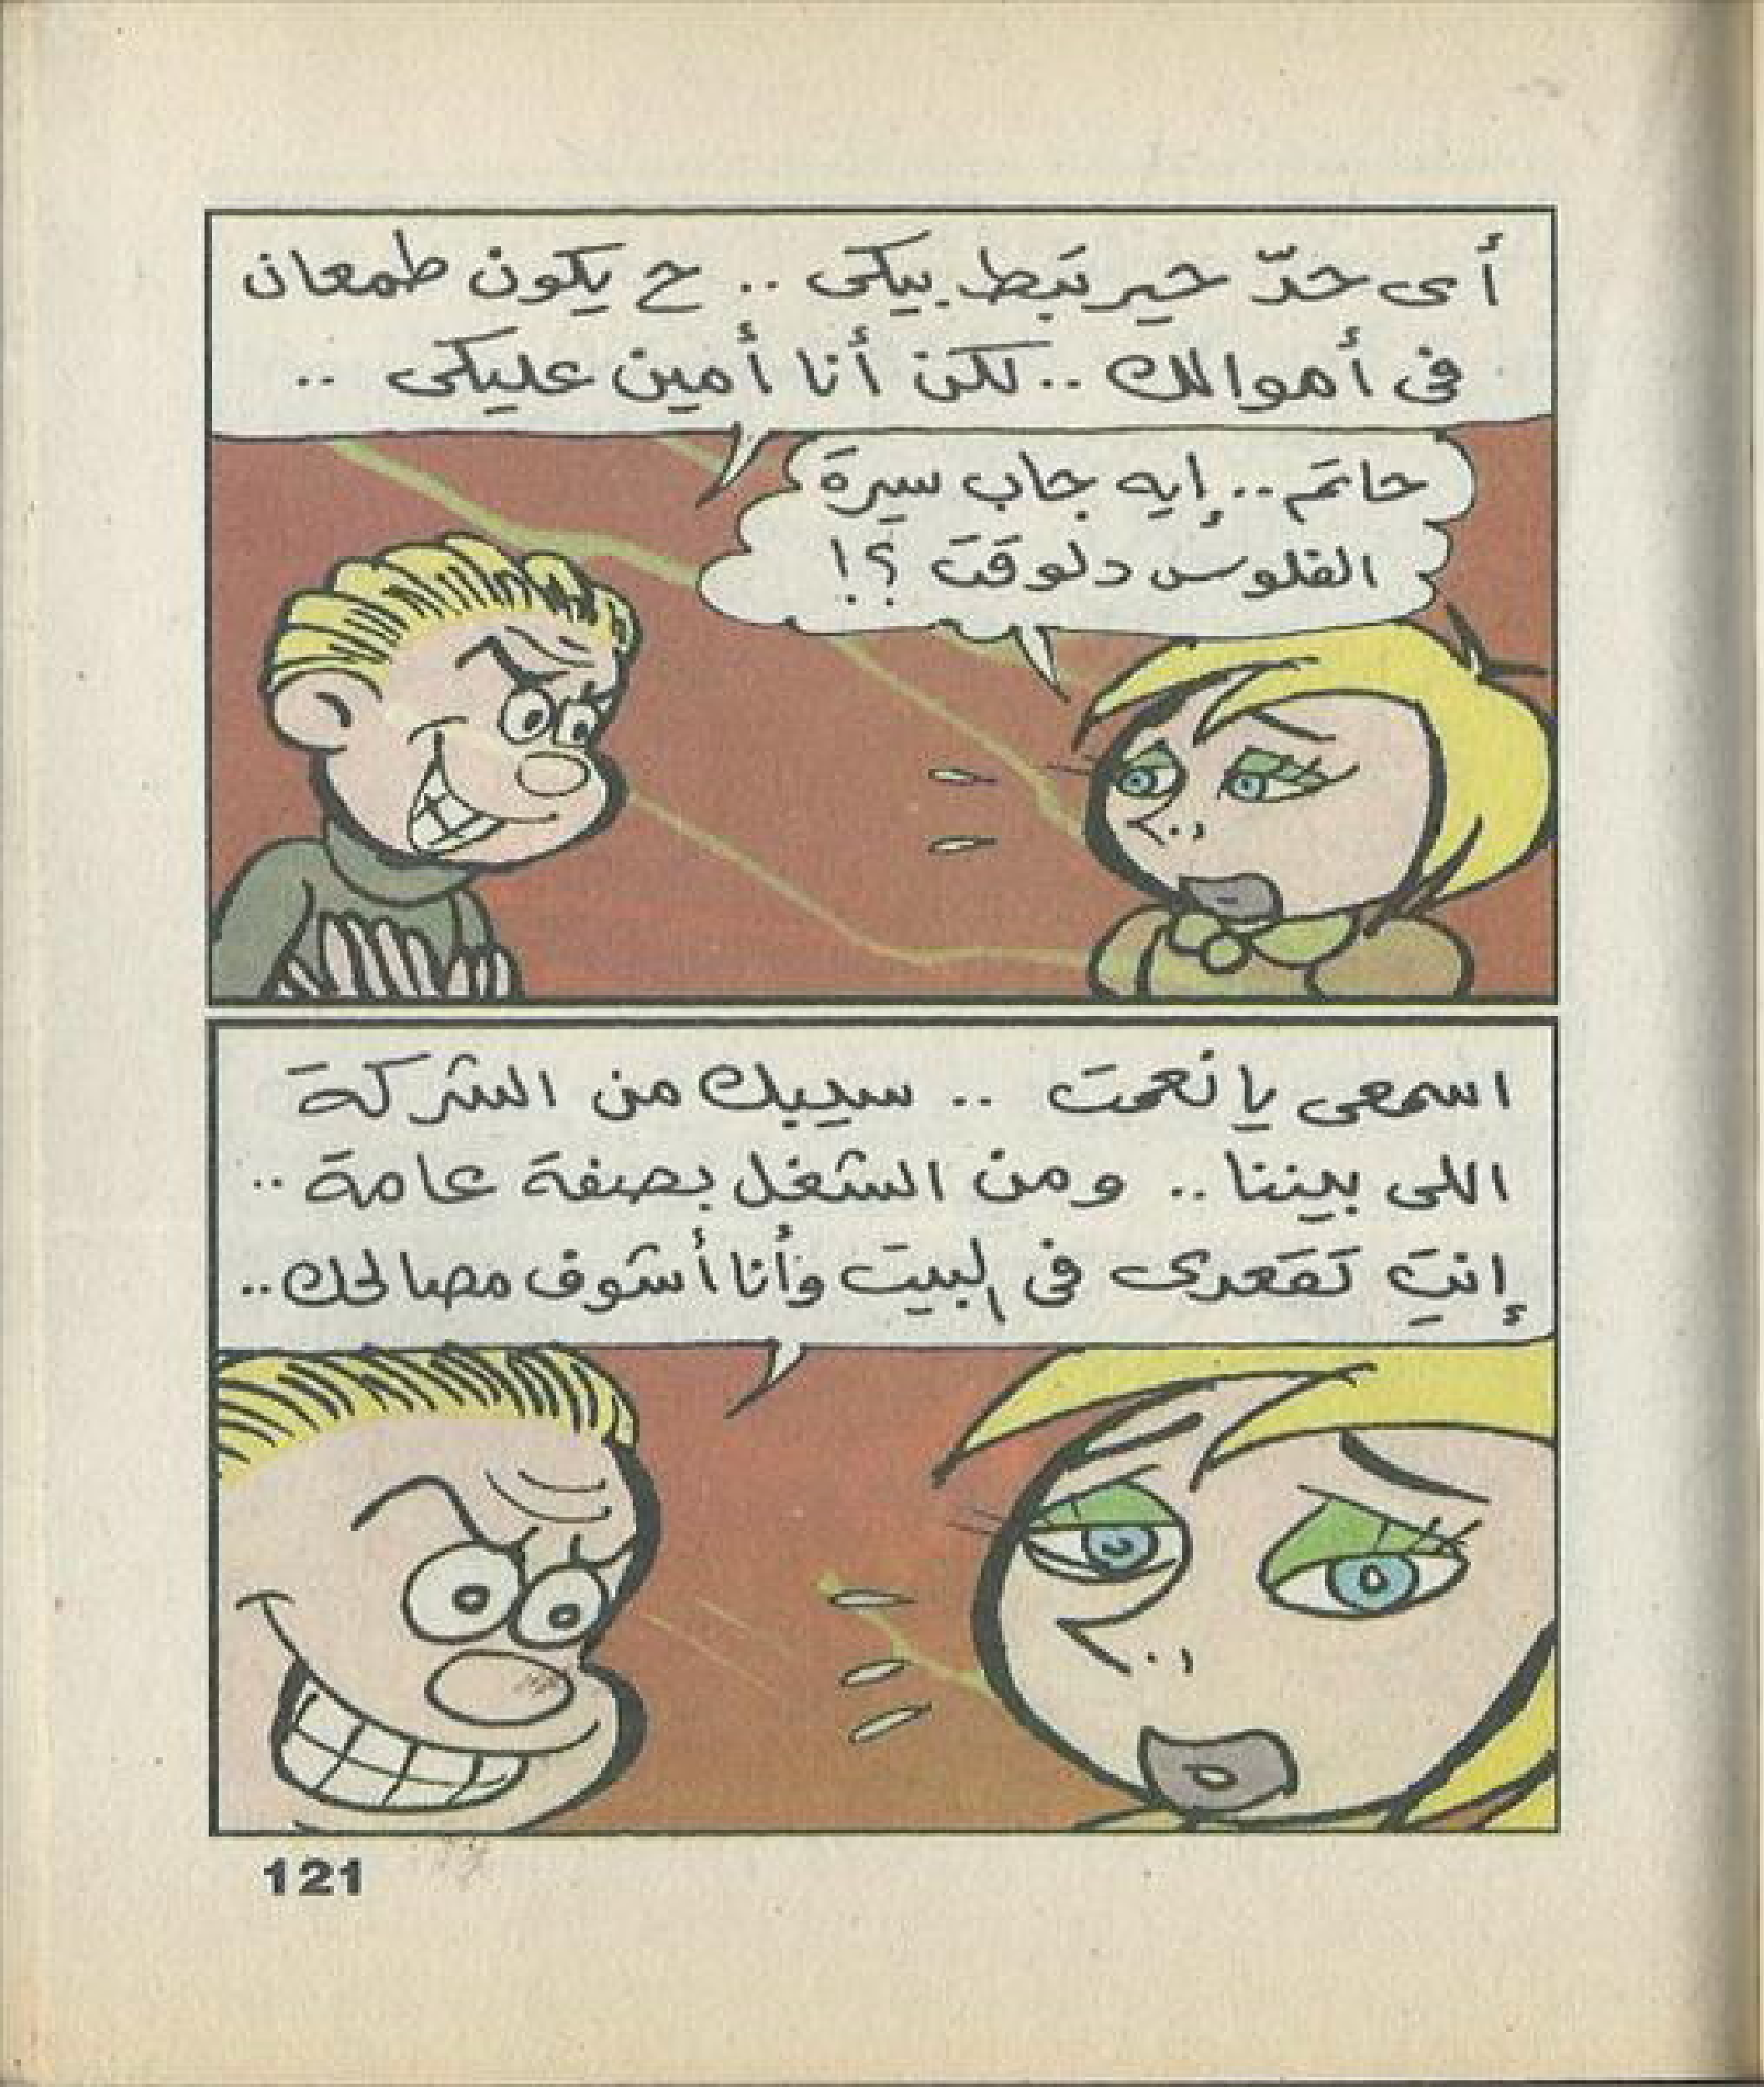 أى حدّ حيرتبط بيكى .. ح يكون طمعان
فى أموالك .. لكن أنا أمين عليكى ..
حاتم .. إيه جاب سيرة
الفلوس دلوقت ؟!
اسمعى يا نعمت .. سيبك من الشركة
اللى بيننا .. ومن الشغل بصفة عامة ..
إنتِ تقعدى فى البيت وأنا أشوف مصالحك ..
121